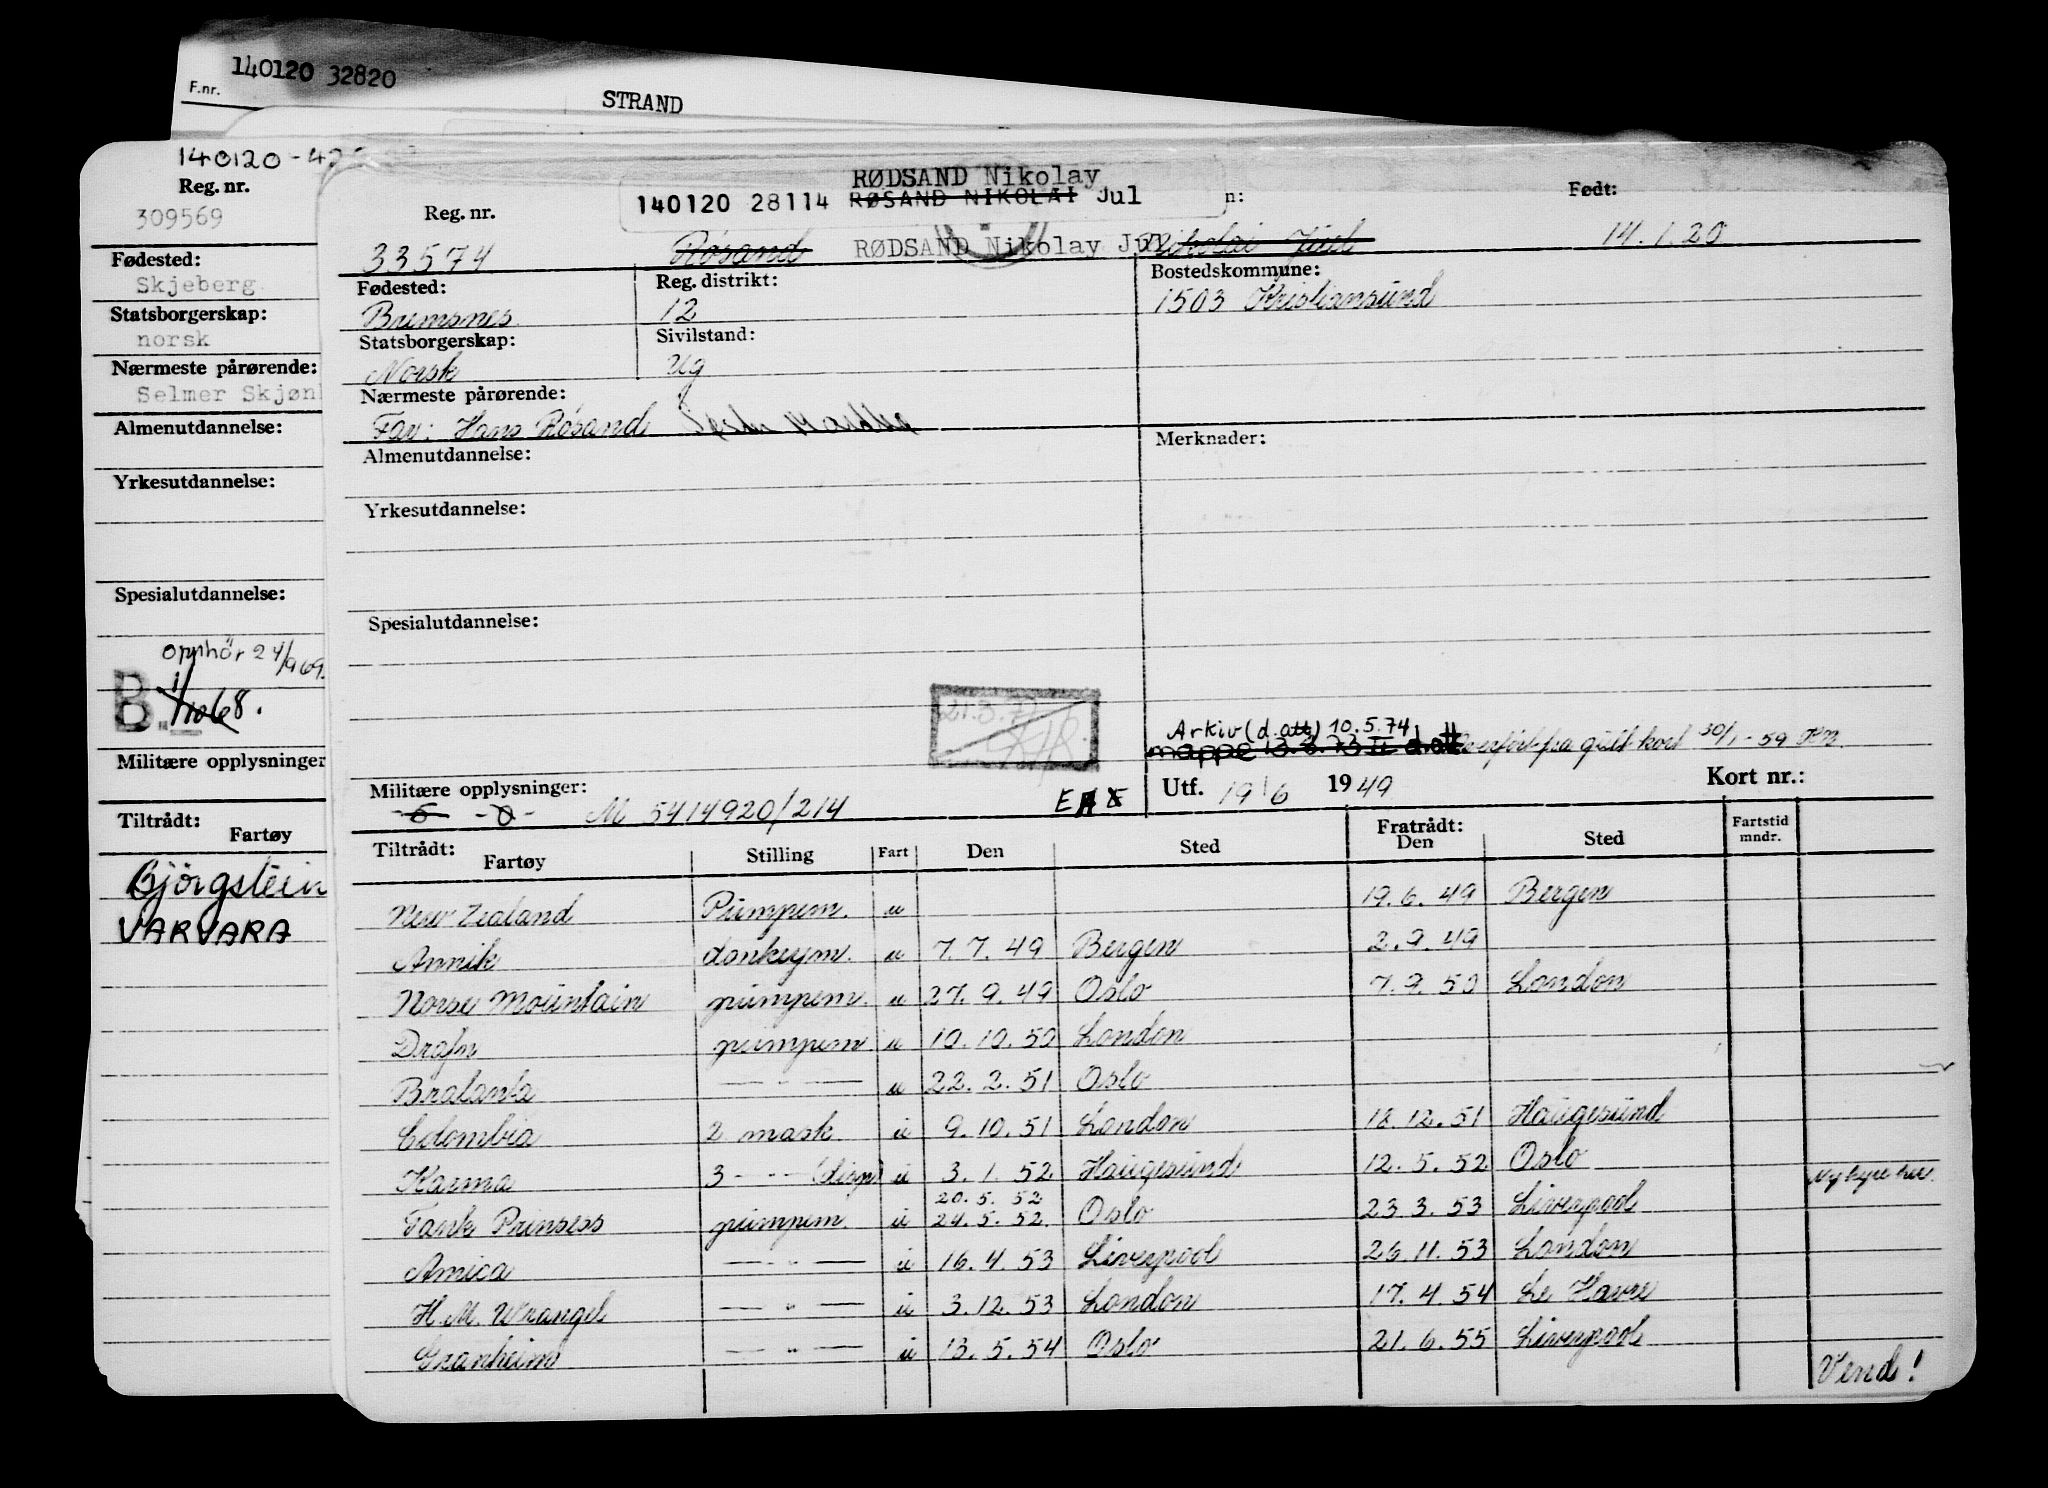 140120 32820
F.nr.
STRAND
140120-42
Reg. nr.
309569
Fødested:
Skjeberg
Statsborgerskap:
norsk
Nærmeste pårørende:
Selmer Skjøn
Almenutdannelse:
Yrkesutdannelse:
Spesialutdannelse:
opphör 24/9 69.
B
Militære opplysninger
Tiltrådt:
Fartøy
Bjørgstein
VARVARA
RØDSAND Nikolay
140120 28114 RØSAND NIKOLAI Jul n: Født:
Reg. nr.
33574 Røsand RØDSAND Nikolay Jul Nikolai Juel 14.1.20
Fødested: Reg. distrikt: Bostedskommune:
Bremsnes 12 1503 Kristiansund
Statsborgerskap: Sivilstand:
Norsk Ug
Nærmeste pårørende:
Far: Hans Røsand
Almenutdannelse: Merknader:
Yrkesutdannelse:
Spesialutdannelse:
Arkiv (d.att) 10.5.74
mappe 13.8.73 II d.att Overført fra gult kort 30/1-59
Militære opplysninger: Utf. 19/6 1949 Kort nr.:
M 5414920/214
Tiltrådt: Fartøy Stilling Fart Den Sted Fratrådt: Den Sted Fartstid mndr.
New Zealand Pumpem. u 19.6.49 Bergen
Annik donkeym. u 7.7.49 Bergen 2.9.49
Norse Mountain pumpem. u 27.9.49 Oslo 7.9.50 London
Drafn pumpem. u 10.10.50 London
Bralanta — " — u 22.2.51 Oslo
Colombia 2 mask. u 9.10.51 London 18.12.51 Haugesund
Karma 3 - " - (disp) u 3.1.52 Haugesund 12.5.52 Oslo
20.5.52
Tank Prinsess pumpem. u 24.5.52. Oslo 23.3.53 Liverpool
Amica — " — u 16.4.53 Liverpool 26.11.53 London
H.M. Wrangel — " — u 3.12.53 London 17.4.54 Le Havre
Granheim — " — u 13.5.54 Oslo 21.6.55 Liverpool
Vend!